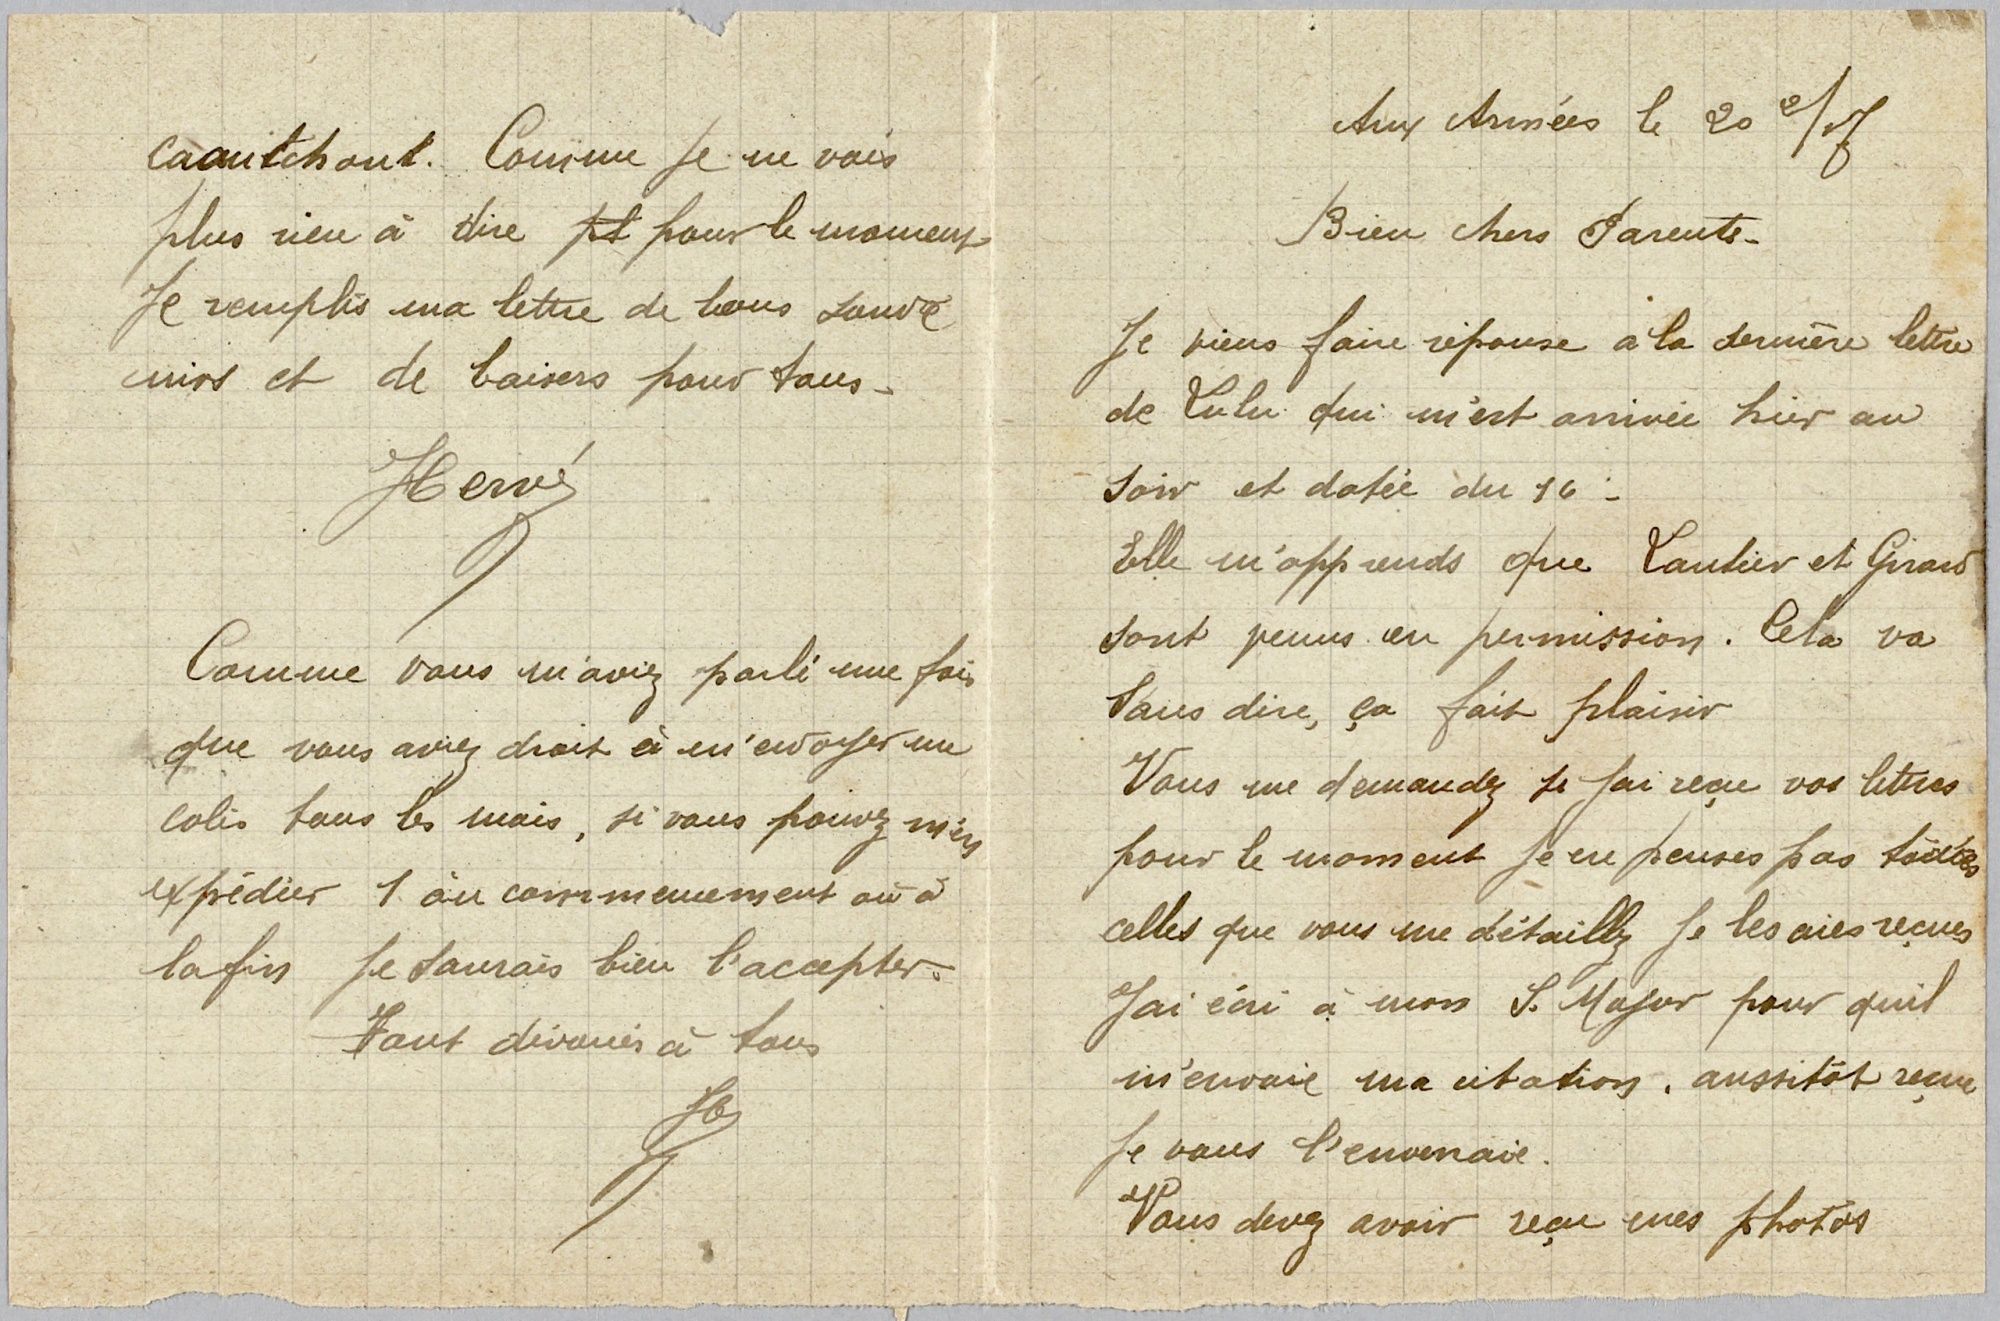 Aux Armées le 20 2/17
Bien chers Parents-
Je viens faire réponse à la dernière lettre
de Lulu qui m'est arrivée hier au
soir et datée du 16-
Elle m'apprends que Lautier et Girard
sont venus en permission. Cela va
sans dire, ça fait plaisir
Vous me demandez si j'ai reçu vos lettres
pour le moment je ne penses pas toutes
celles que vous me détaillez je les aies reçues
J'ai écri à mon S. Major pour quil
m'envoie ma citation. aussitôt reçue
Je vous l'enverraie.
Vous devez avoir reçu mes photos
caoutchout. Comme je ne vois
plus rien à dire pt pour le moment
Je remplis ma lettre de bons souve
nirs et de baisers pour tous-
Hervé
Comme vous m'aviez parlé une fois
que vous aviez droit à m'envoyer un
colis tous les mois, si vous pouvez m'en
expédier 1 au commencement où à
la fin je saurais bien l'accepter.
Tout dévoués à tous
H